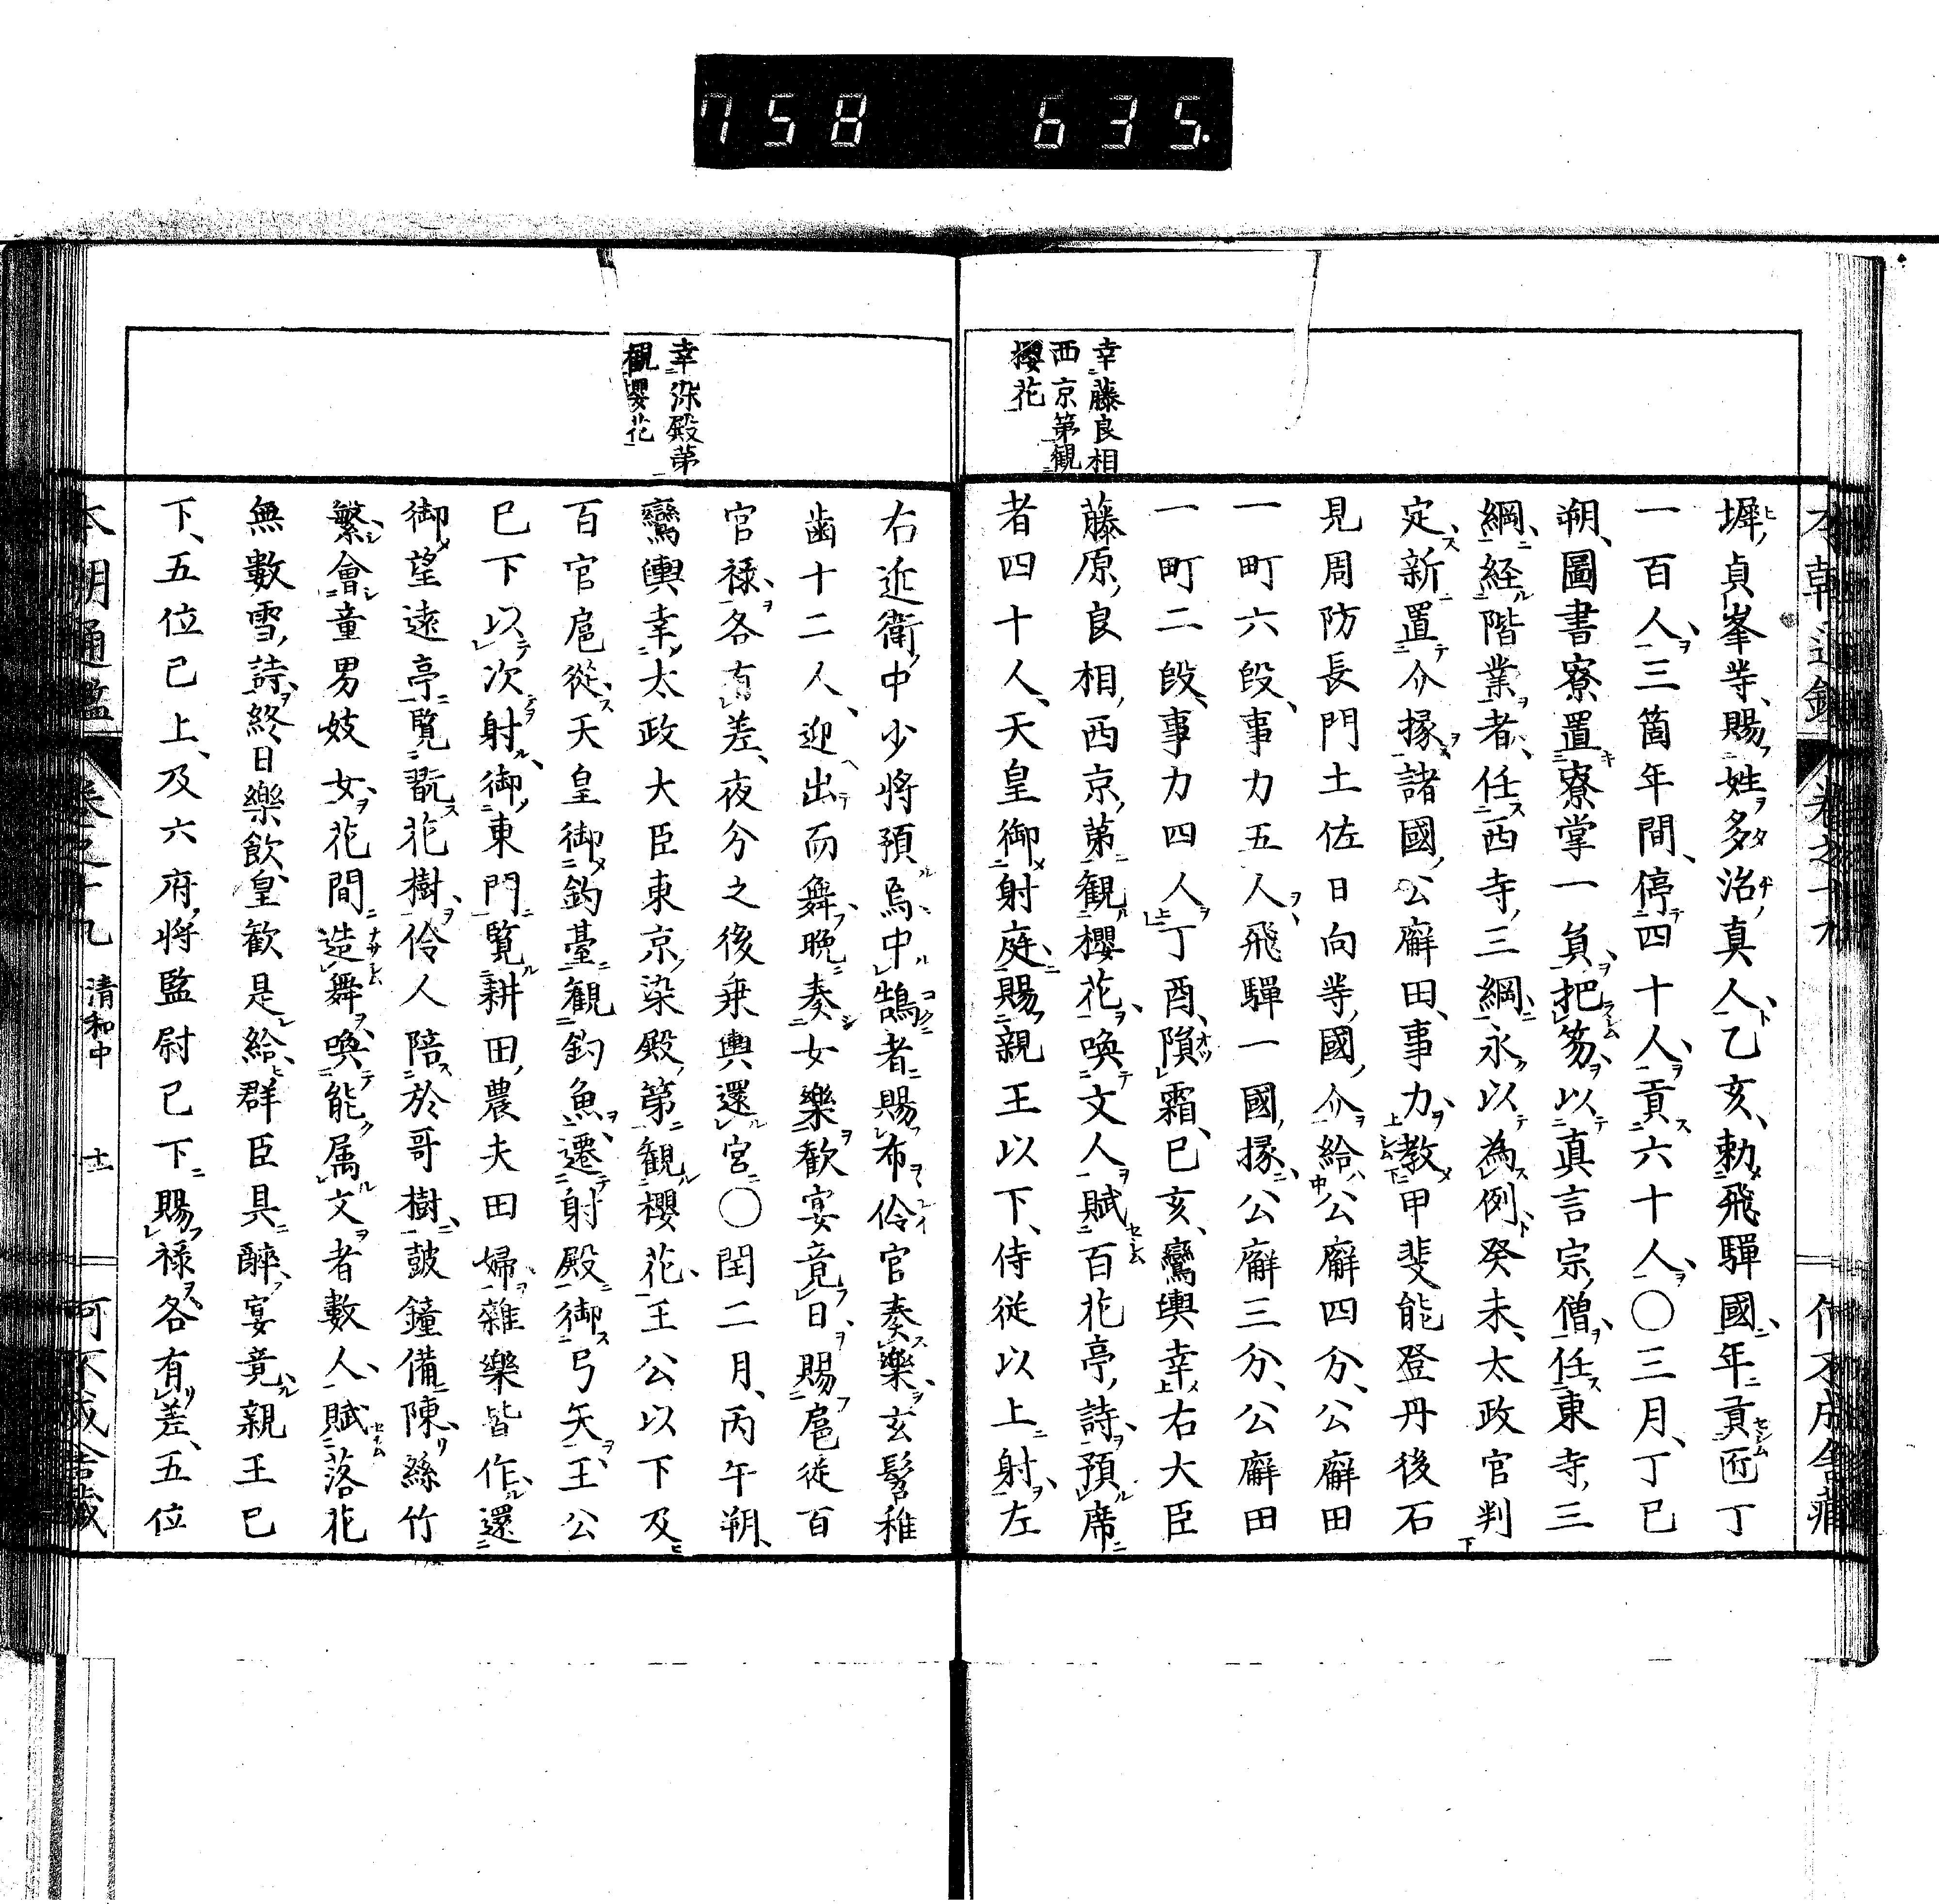 758 635.
幸藤良相
西京第観
櫻花
墀貞峯等賜姓多治真人乙亥勅飛驒國年貢匠丁
一百人三箇年間停四十人貢六十人〇三月丁巳
朔圖書寮置寮掌一負把笏以真言宗僧任東寺三
綱経階業者任西寺三綱永以為例癸未太政官判
定新置介掾諸國公廨田事力教甲斐能登丹後石
見周防長門土佐日向等國介給公廨四分公廨田
一町六段事力五人飛驒一國掾公廨三分公廨田
一町二段事力四人丁酉隕霜巳亥鸞輿幸右大臣
藤原良相西京第観櫻花喚文人賦百花亭詩預席
者四十人天皇御射庭賜親王以下侍従以上射左
幸染殿第
観櫻花
右近衛中少将預焉中鵠者賜布伶官奏樂玄髫稚
歯十二人迎出而舞晩奏女樂歓宴竟日賜扈従百
官禄各有差夜分之後乗輿還宮〇閏二月丙午朔
鸞輿幸太政大臣東京染殿第観櫻花王公以下及
百官扈從天皇御釣臺観釣魚遷射殿御弓矢王公
已下以次射御東門覧耕田農夫田婦雜樂皆作還
御望遠亭覧翫花樹伶人陪於哥樹鼓鐘備陳絲竹
繁會童男妓女花間造舞喚能属文者數人賦落花
無數雪詩終日樂飲皇歓是給群臣具醉宴竟親王已
下五位已上及六府将監尉已下賜禄各有差五位
本朝通鑑 巻之十九 清和中 十一